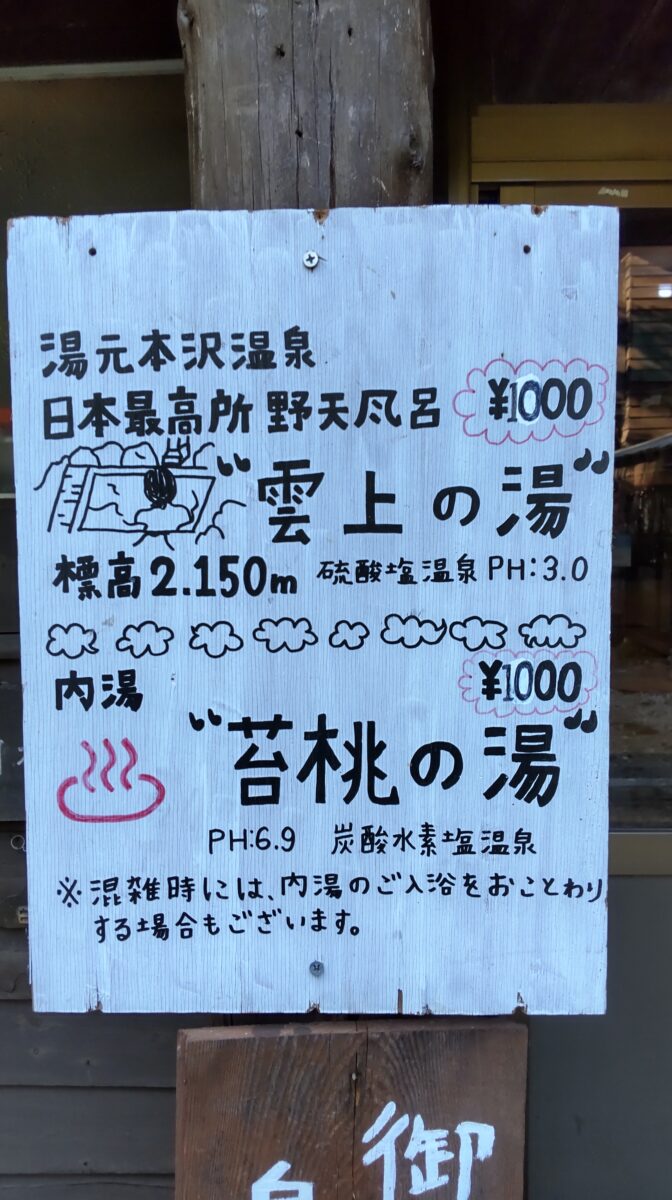 湯元本沢温泉
日本最高所 野天風呂 ¥1000
“雲上の湯”
標高2.150m 硫酸塩温泉 PH:3.0
内湯 ¥1000
“苔桃の湯”
PH:6.9 炭酸水素塩温泉
※混雑時には、内湯のご入浴をおことわり
する場合もございます。
御